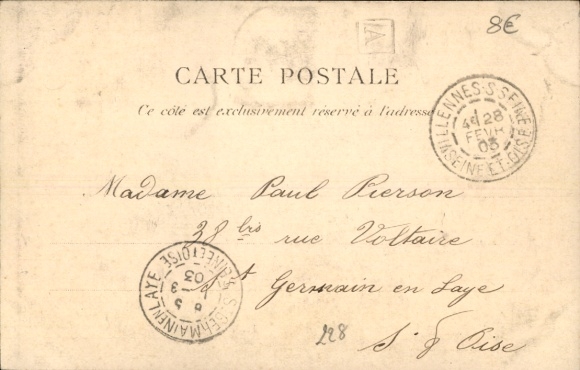 8€
A
CARTE POSTALE
Ce côté est exclusivement réservé à l'adresse
VILLENNES-S-SEINE
4E 28
FEVR
03
SEINE ET OISE
Madame Paul Pierson
38 bis rue Voltaire
St Germain en Laye
S. & Oise
ST GERMAIN EN LAYE
6
5 3
03
SEINE ET OISE
228